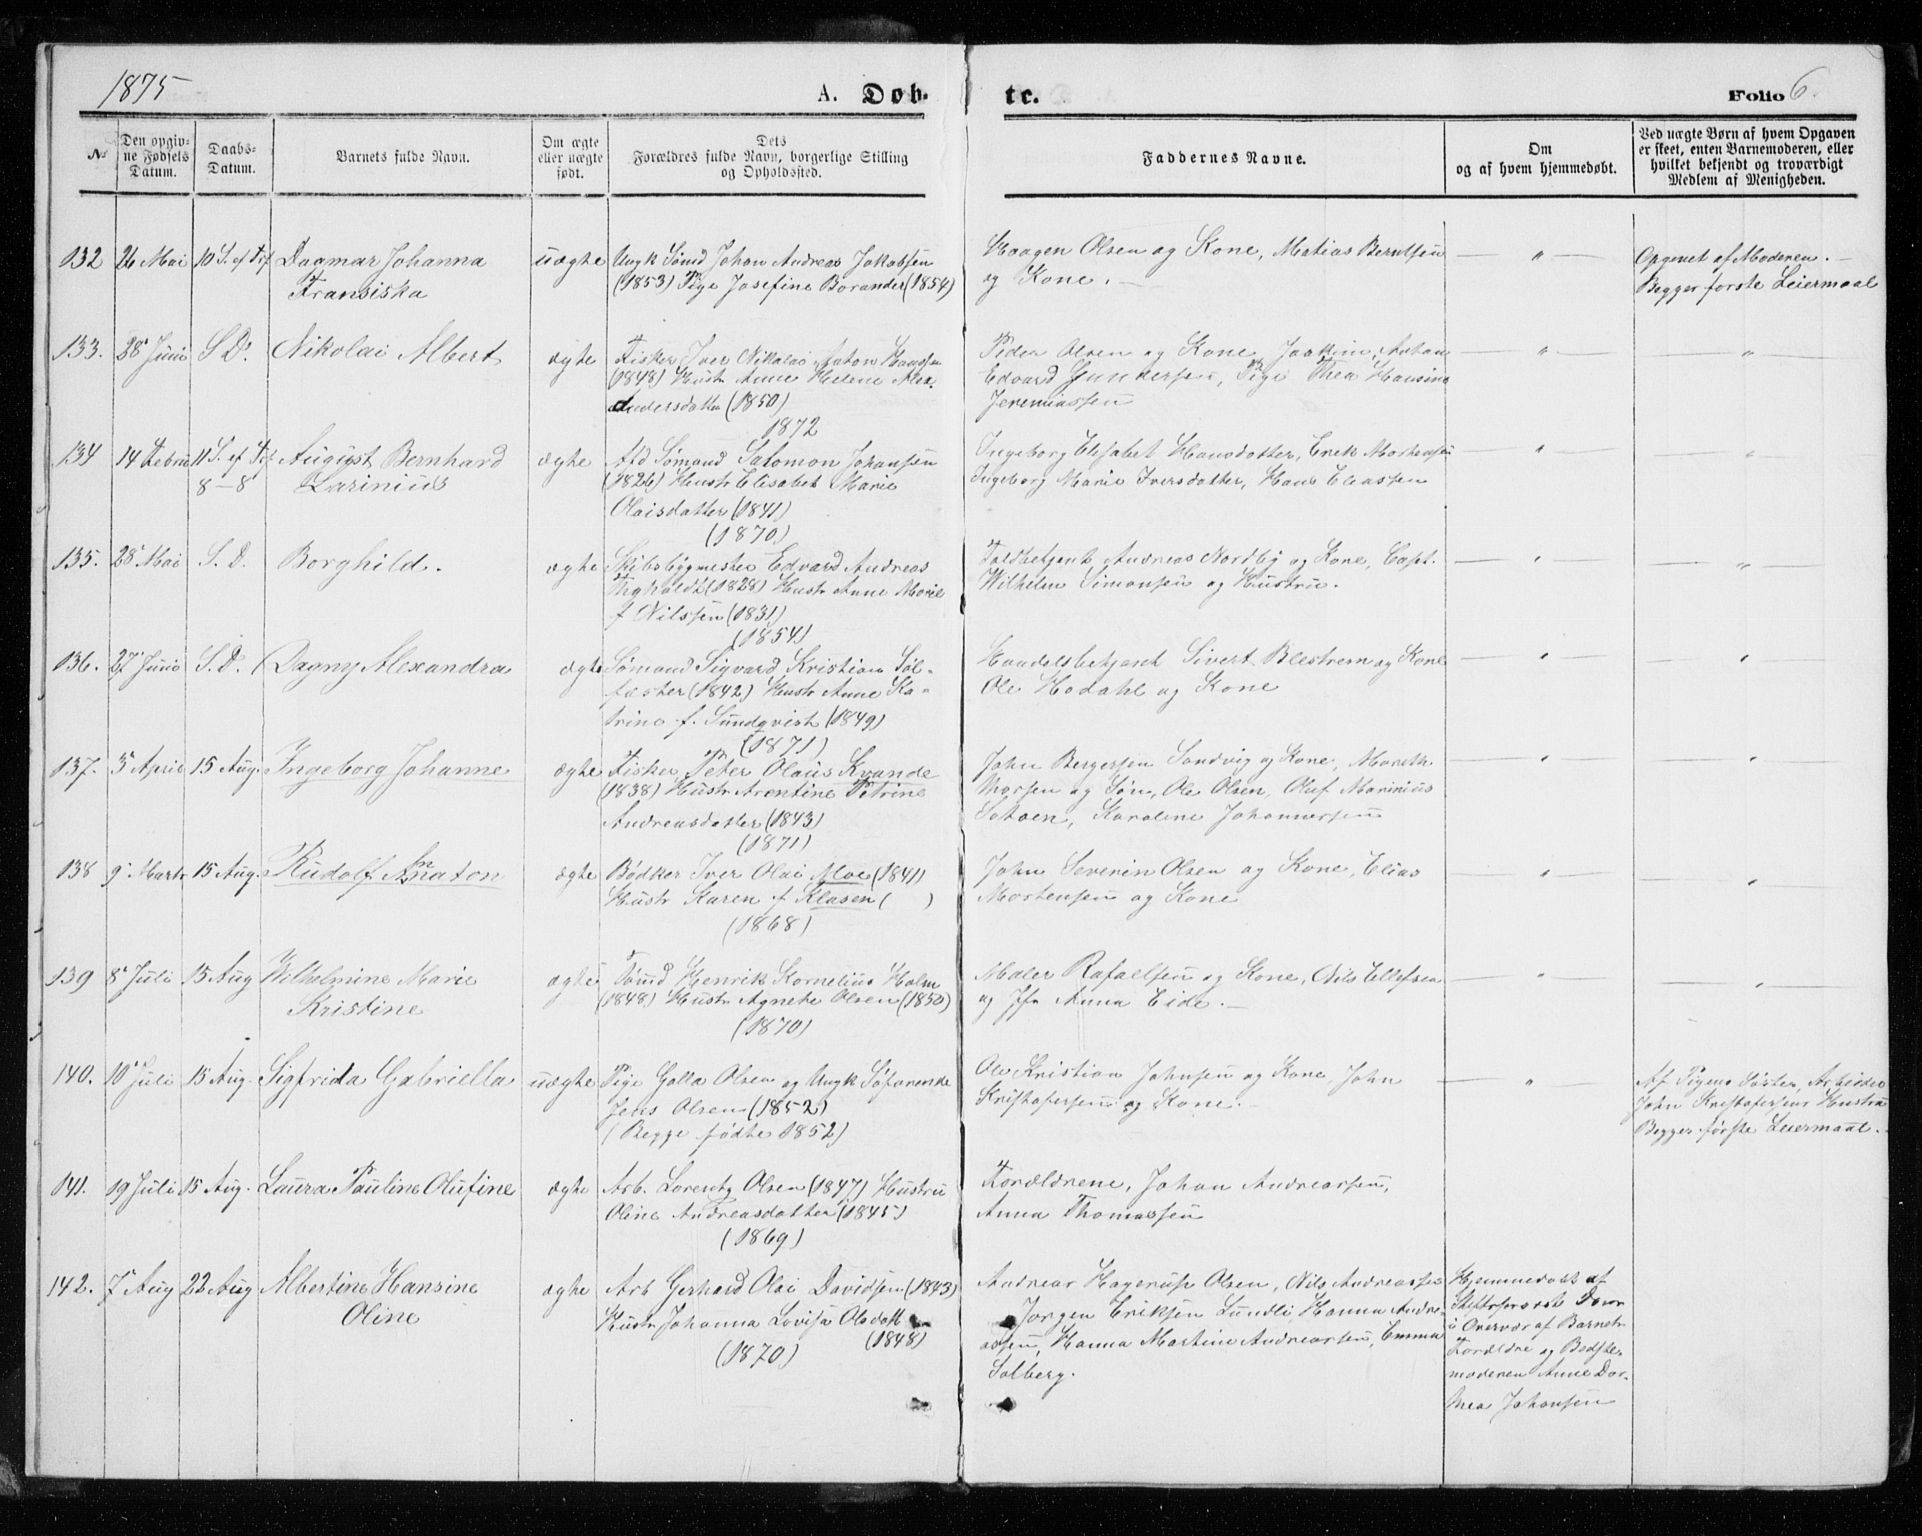 1875
A. Døb-
te.
Folio 6.
No
Den opgiv-
ne Fødsels
Datum.
Daabs-
Datum.
Barnets fulde Navn.
Om ægte
eller uægte
født.
Dets
Forældres fulde Navn, borgerlige Stilling
og Opholdssted.
Faddernes Navne.
Om
og af hvem hjemmedøbt.
Ved uægte Børn af hvem Opgaven
er skeet, enten Barnemoderen, eller
hvilket bekjendt og troværdigt
Medlem af Menigheden.
132 26 Mai 10 S. ef Trf Dagmar Johanna uægte Ungk Sømd Johan Andreas Jakobsen Haagen Olsen og Kone, Mathias Berntsen " Opgivet af Moderen. -
Fransiska (1853) Pige Josefine Borander (1854) og Kone. - Begges første Leiermaal
133. 28 Juni S. D. Nikolai Albert ægte Fisker Iver Nikolai Anton Hansen Peder Olsen og Kone, Joakim Anton " "
(1848) Hustr Anne Helene Alex- Edvard Gundersen, Pige Thea Hansine
andersdatter (1850) Jeremiassen
1872
134 14 Febru 11 S. ef Trf August Bernhard ægte Afd Sømand Salomon Johansen Ingeborg Elisabet Hansdatter, Erik Mortensen " "
8-8 Larinius (1826) Hustr Elisabet Marie Ingeborg Marie Iversdatter, Hans Eliassen
Olaisdatter (1841)
(1870)
135. 28 Mai S. D. Borghild. ægte Skibsbygmester Edvard Andreas Toldbetjent Andreas Nordby og Kone, Capt. " "
(1828) Hustr Anne Marie Wilhelm Simonsen og Hustru.
f Nilssen (1831)
(1854)
136. 27 Juni S. D. Dagny Alexandra ægte Sømand Sigvard Kristian Søl- Handelsbetjent Sivert Blestrem og Kone " "
fæster (1842) Hustr Anne Ka- Ole Hodahl og Kone
trine f. Sundqvist (1849)
(1871)
137. 3 April 15 Aug. Ingeborg Johanne ægte Fisker Peter Olaus Kvande John Bergersen Sandvig og Kone, Mareth " "
(1838) Hustr Arentine Petrine Thorsen og Søn, Ole Olsen, Oluf Marinius
Andreasdatter (1843) Karoline Johannessen
(1871)
138 9 Marts 15 Aug. Rudolf Annaton ægte Bødker Iver Olai Aloe (1841) John Severin Olsen og Kone, Elias " "
Hustr Karen f Klasen ( ) Mortensen og Kone
(1868)
139 8 Juli 15 Aug Wilhelmine Marie ægte Tømd Henrik Kornelius Holm Maler Rafaelsen og Kone, Nils Ellefsen " "
Kristine (1848) Hustr Agnete Olsen (1850) og Jfr Anna Eide. -
(1870)
140. 10 Juli 15 Aug. Sigfrida Gabriella uægte Pige Golla Olsen og Ungk Søfarende Ole Kristian Johnsen og Kone, John " Af Pigens Søster, Arbeider
Jens Olsen (1852) Kristofersen og Kone. - John Kristofersens Hustru
(Begge fødte 1852) Begges første Leiermaal.
141. 19 Juli 15 Aug. Laura Pauline Olufine ægte Arb. Lorentz Olsen (1847) Hustru Forældrene, Johan Andreassen,
Oline Andreasdatter (1845) Anna Thomassen
(1869)
142. 7 Aug 22 Aug Albertine Hansine ægte Arb Gerhard Olai Davidsen (1843) Andreas Hagerup Olsen, Nils Andreassen Hjemmedøbt af
Oline Hustr Johanna Lovisa Olsdatt Jørgen Eriksen Lundli, Hanna Andre- Stiftsprovst
(1848) assen, Hanna Martine Andreassen, Emma i Overvær af Barnets
(1870) Solberg. Forældre og Bedste-
moderen Anne Dor-
thea Johansen